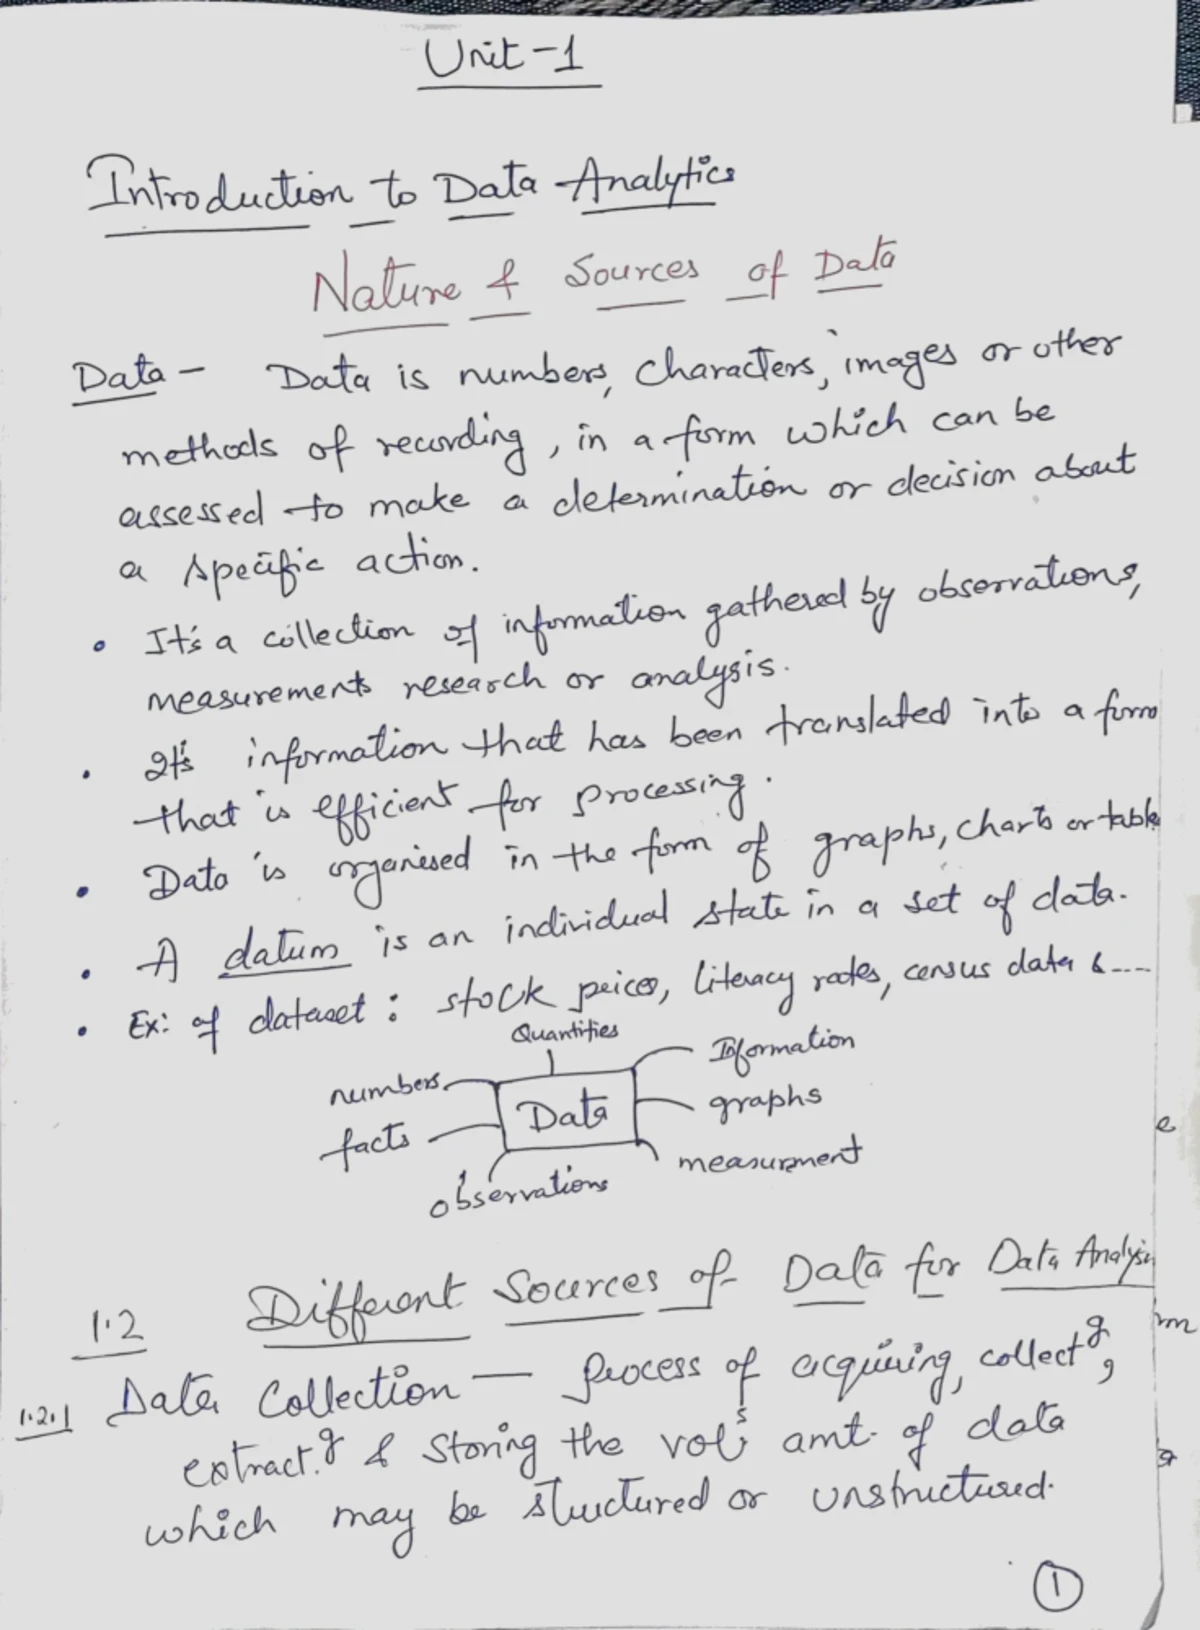 Unit-1
Introduction to Data Analytics
Nature & Sources of Data
Data - Data is numbers, characters, images or other
methods of recording, in a form which can be
assessed to make a determination or decision about
a specific action.
• It's a collection of information gathered by observations,
measurements research or analysis.
• It's information that has been translated into a form
that is efficient for processing.
• Data is organised in the form of graphs, charts or table
• A datum is an individual state in a set of data.
• Ex: of dataset : stock prices, literacy rates, census data & ----
Quantities
numbers
Information
Data
graphs
facts
measurment
observations
1.2 Different Sources of Data for Data Analysis
1.2.1 Data Collection — process of acquiring, collectg,
extract.g & storing the vol. amt. of data
which may be structured or unstructured.
1
e
m